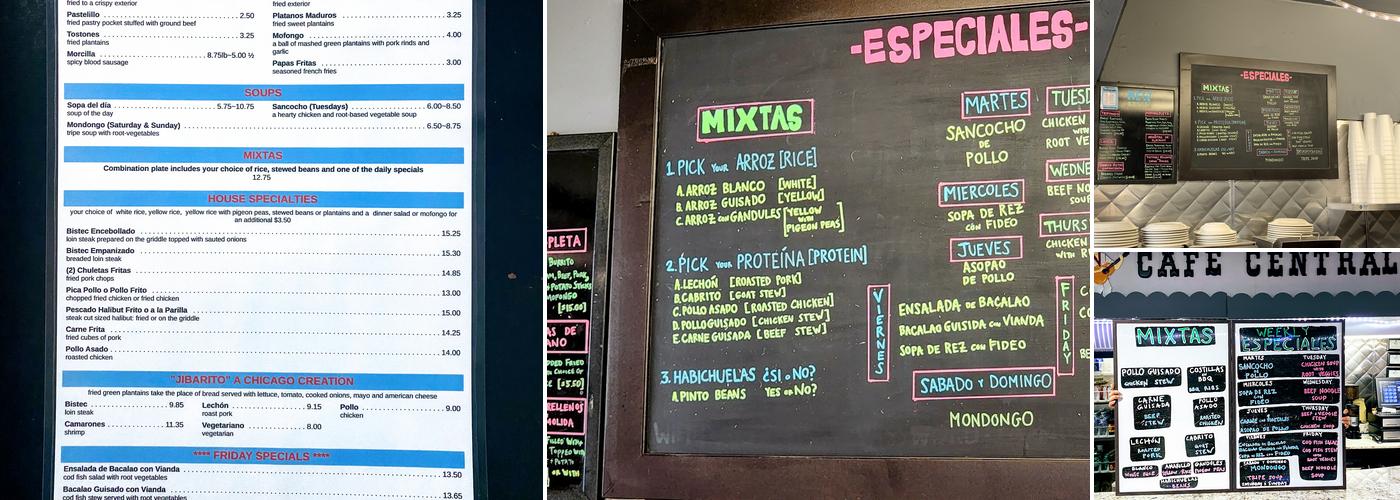 fried to a crispy exterior
Pastelillo 2.50
fried pastry pocket stuffed with ground beef
Tostones 3.25
fried plantains
Morcilla 8.75lb–5.00 ½
spicy blood sausage
fried exterior
Platanos Maduros 3.25
fried sweet plantains
Mofongo 4.00
a ball of mashed green plantains with pork rinds and
garlic
Papas Fritas 3.00
seasoned french fries
SOUPS
Sopa del día 5.75–10.75
soup of the day
Sancocho (Tuesdays) 6.00–8.50
a hearty chicken and root-based vegetable soup
Mondongo (Saturday & Sunday) 6.50–8.75
tripe soup with root-vegetables
MIXTAS
Combination plate includes your choice of rice, stewed beans and one of the daily specials
12.75
HOUSE SPECIALTIES
your choice of white rice, yellow rice, yellow rice with pigeon peas, stewed beans or plantains and a dinner salad or mofongo for
an additional $3.50
Bistec Encebollado 15.25
loin steak prepared on the griddle topped with sauted onions
Bistec Empanizado 15.30
breaded loin steak
(2) Chuletas Fritas 14.85
fried pork chops
Pica Pollo o Pollo Frito 13.00
chopped fried chicken or fried chicken
Pescado Halibut Frito o a la Parilla 15.00
steak cut sized halibut: fried or on the griddle
Carne Frita 14.25
fried cubes of pork
Pollo Asado 14.00
roasted chicken
"JIBARITO" A CHICAGO CREATION
fried green plantains take the place of bread served with lettuce, tomato, cooked onions, mayo and american cheese
Bistec 9.85
loin steak
Lechón 9.15
roast pork
Pollo 9.00
chicken
Camarones 11.35
shrimp
Vegetariano 8.00
vegetarian
**** FRIDAY SPECIALS ****
Ensalada de Bacalao con Vianda 13.50
cod fish salad with root vegetables
Bacalao Guisado con Vianda 13.65
cod fish stew served with root vegetables
-ESPECIALES-
MIXTAS
1. PICK YOUR ARROZ [RICE]
A. ARROZ BLANCO [WHITE]
B. ARROZ GUISADO [YELLOW]
C. ARROZ CON GANDULES [YELLOW
WITH
PIGEON PEAS]
2. PICK YOUR PROTEÍNA [PROTEIN]
A. LECHON [ROASTED PORK]
B. CABRITO [GOAT STEW]
C. POLLO ASADO [ROASTED CHICKEN]
D. POLLO GUISADO [CHICKEN STEW]
E. CARNE GUISADA [BEEF STEW]
3. HABICHUELAS ¿SI O NO?
A. PINTO BEANS YES OR NO?
MARTES
SANCOCHO
DE
POLLO
MIERCOLES
SOPA DE REZ
CON FIDEO
JUEVES
ASOPAO
DE POLLO
VIERNES
ENSALADA DE BACALAO
BACALAO GUISIDA CON VIANDA
SOPA DE REZ CON FIDEO
SABADO Y DOMINGO
MONDONGO
TUESD
CHICKEN
WITH
ROOT VE
WEDNE
BEEF NO
SOUP
THURS
CHICKEN
WITH R
FRIDAY
PLETA
BURRITO
MOFONGO
[$15.00]
AS DE
ANO
[$5.50]
RELLENOS
-ESPECIALES-
MIXTAS
MONDONGO
CAFE CENTRAL
MIXTAS
POLLO GUISADO
CHICKEN STEW
COSTILLAS
BBQ
BBQ RIBS
CARNE
GUISADA
BEEF
STEW
POLLO
ASADO
ROASTED
CHICKEN
LECHÓN
ROASTED
PORK
CABRITO
GOAT
STEW
WEEKLY
ESPECIALES
MARTES
SANCOCHO
DE
POLLO
TUESDAY
CHICKEN SOUP
WITH
ROOT VEGGIES
MIERCOLES
SOPA DE REZ
CON
FIDEO
WEDNESDAY
BEEF NOODLE
SOUP
JUEVES
ASOPAO DE POLLO
THURSDAY
VIERNES
FRIDAY
MONDONGO
TRIPE SOUP
BEEF NOODLE
SOUP